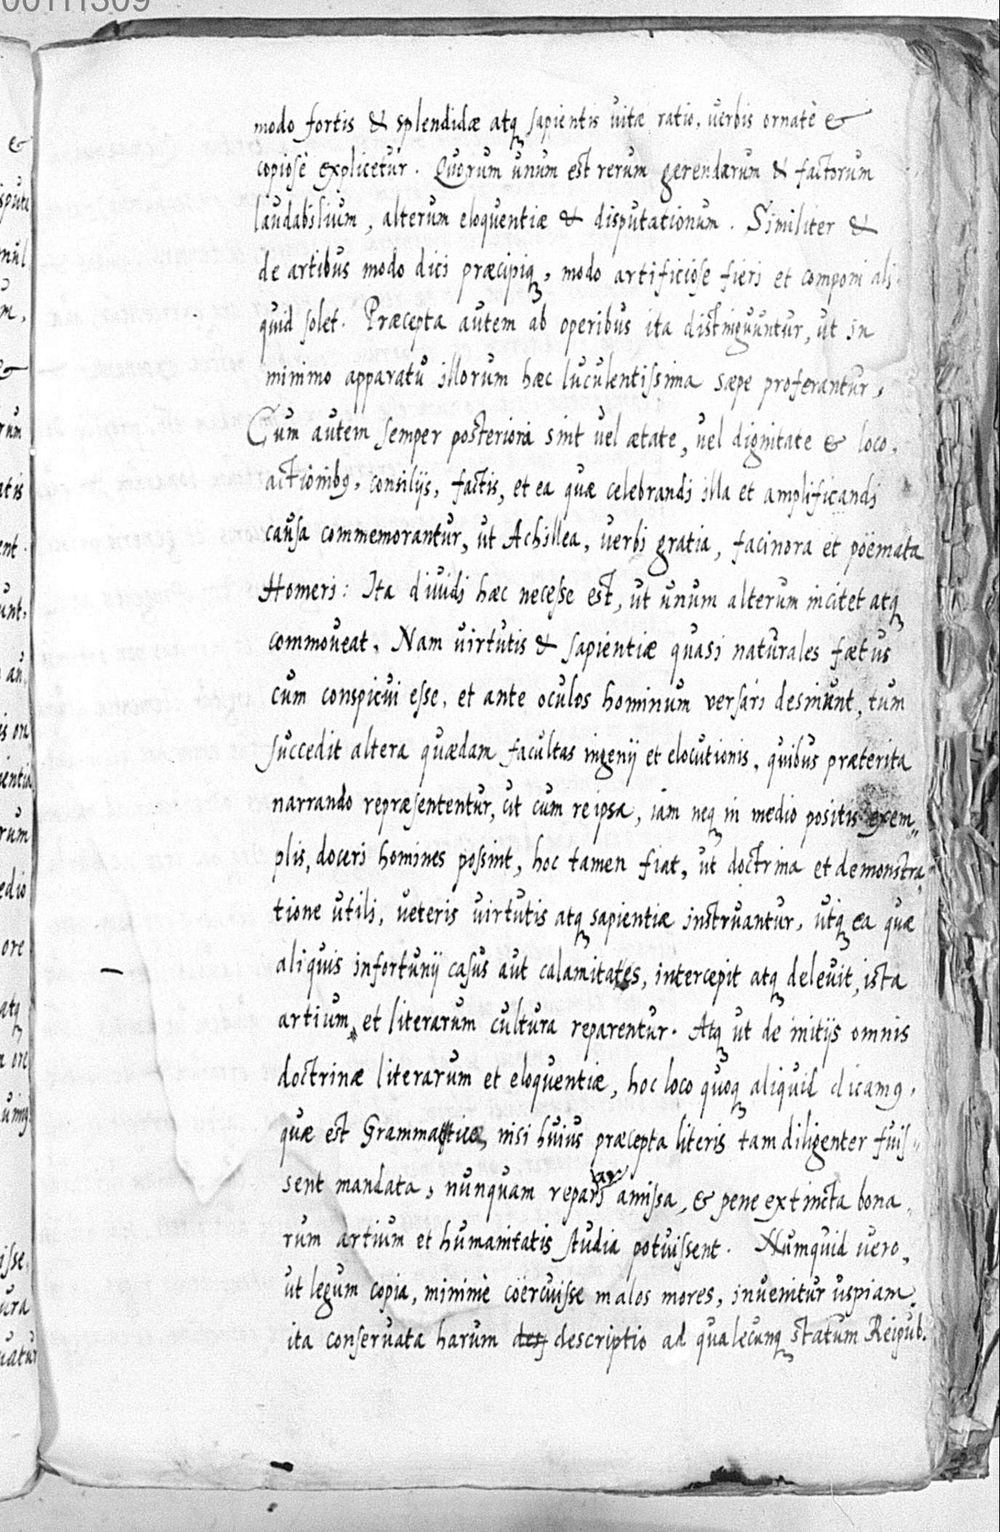 00111309
modo fortis & splendidæ atq sapientis uitæ ratio, uerbis ornatè &
copiosè explicetur. Quorum unum est rerum gerendarum & factorum
laudabilium, alterum eloquentiæ & disputationum. Similiter &
de artibus modo dici præcipiq, modo artificiose fieri et componi ali-
quid solet. Præcepta autem ab operibus ita distinguuntur, ut in
minimo apparatu illorum hæc luculentissima sæpe proferantur,
Cum autem semper posteriora sint uel ætate, uel dignitate & loco,
actionibq, consilijs, factis, et ea quæ celebrandi illa et amplificandi
causa commemorantur, ut Achillea, uerbi gratia, facinora et pöemata
Homeri: Ita diuidi hæc necesse est, ut unum alterum incitet atq
commoueat. Nam uirtutis & sapientiæ quasi naturales fœtus
cum conspicui esse, et ante oculos hominum versari desinunt, tum
succedit altera quædam facultas ingenij et elocutionis, quibus præterita
narrando repræsententur, ut cum reipsa, iam neq in medio positis exem,,
plis, doceri homines possint, hoc tamen fiat, ut doctrina et demonstra,,
tione utili, ueteris uirtutis atq sapientiæ instruantur, utq ea quæ
aliquis infortunij casus aut calamitates, intercepit atq deleuit, ista
artium, et literarum cultura reparentur. Atq ut de initijs omnis
doctrinæ literarum et eloquentiæ, hoc loco quoq aliquid dicamq,
quæ est Grammaticæ, nisi huius præcepta literis tam diligenter fuis,,
sent mandata, nunquam repari amissa, & pene extincta bona,,
rum artium et humanitatis studia potuissent. Numquid uero,
ut legum copia, minimè coërcuisse malos mores, inuenitur uspiam,
ita conseruata harum descriptio ad qualecunq statum Reipub.